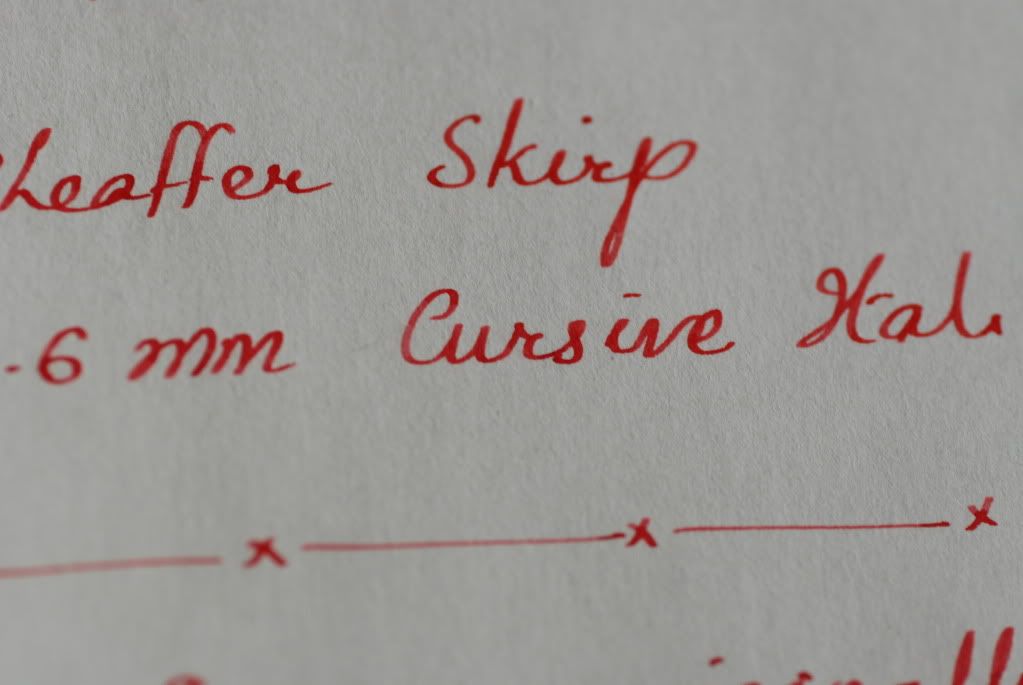 heaffer Skirp
.6 mm Cursive Ital.
x x x